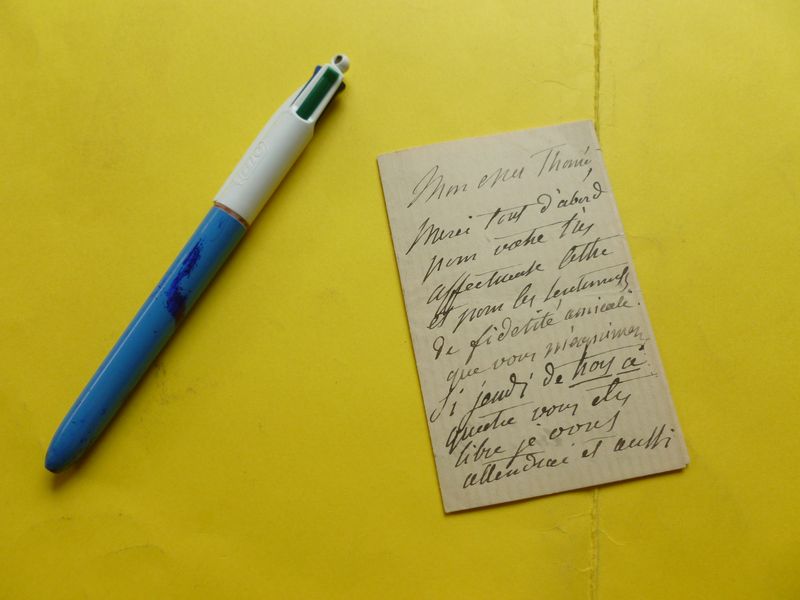 Mon cher Thomé
Merci tout d'abord
pour votre très
affectueuse lettre
et pour les sentiments
de fidélité amicale
que vous m'exprimez.
Si jeudi de trois à
quatre vous êtes
libre je vous
attendrai et aussi